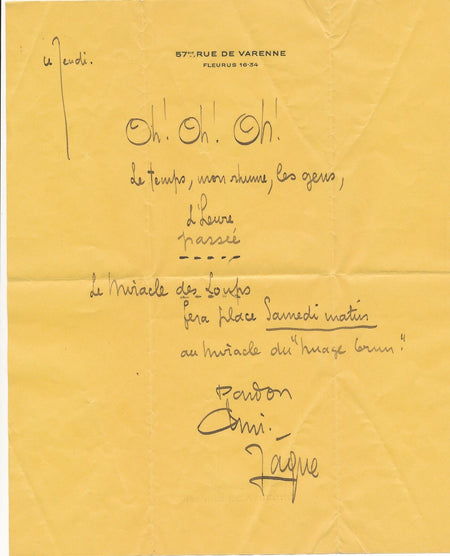 ce Jeudi.
57bis RUE DE VARENNE
FLEURUS 16-34
Oh! Oh! Oh!
Le temps, mon rhume, les gens,
L'Heure
passée
Le Miracle des Loups
fera place Samedi matin
au miracle du "nuage brun."
pardon
Ami.
Jaque